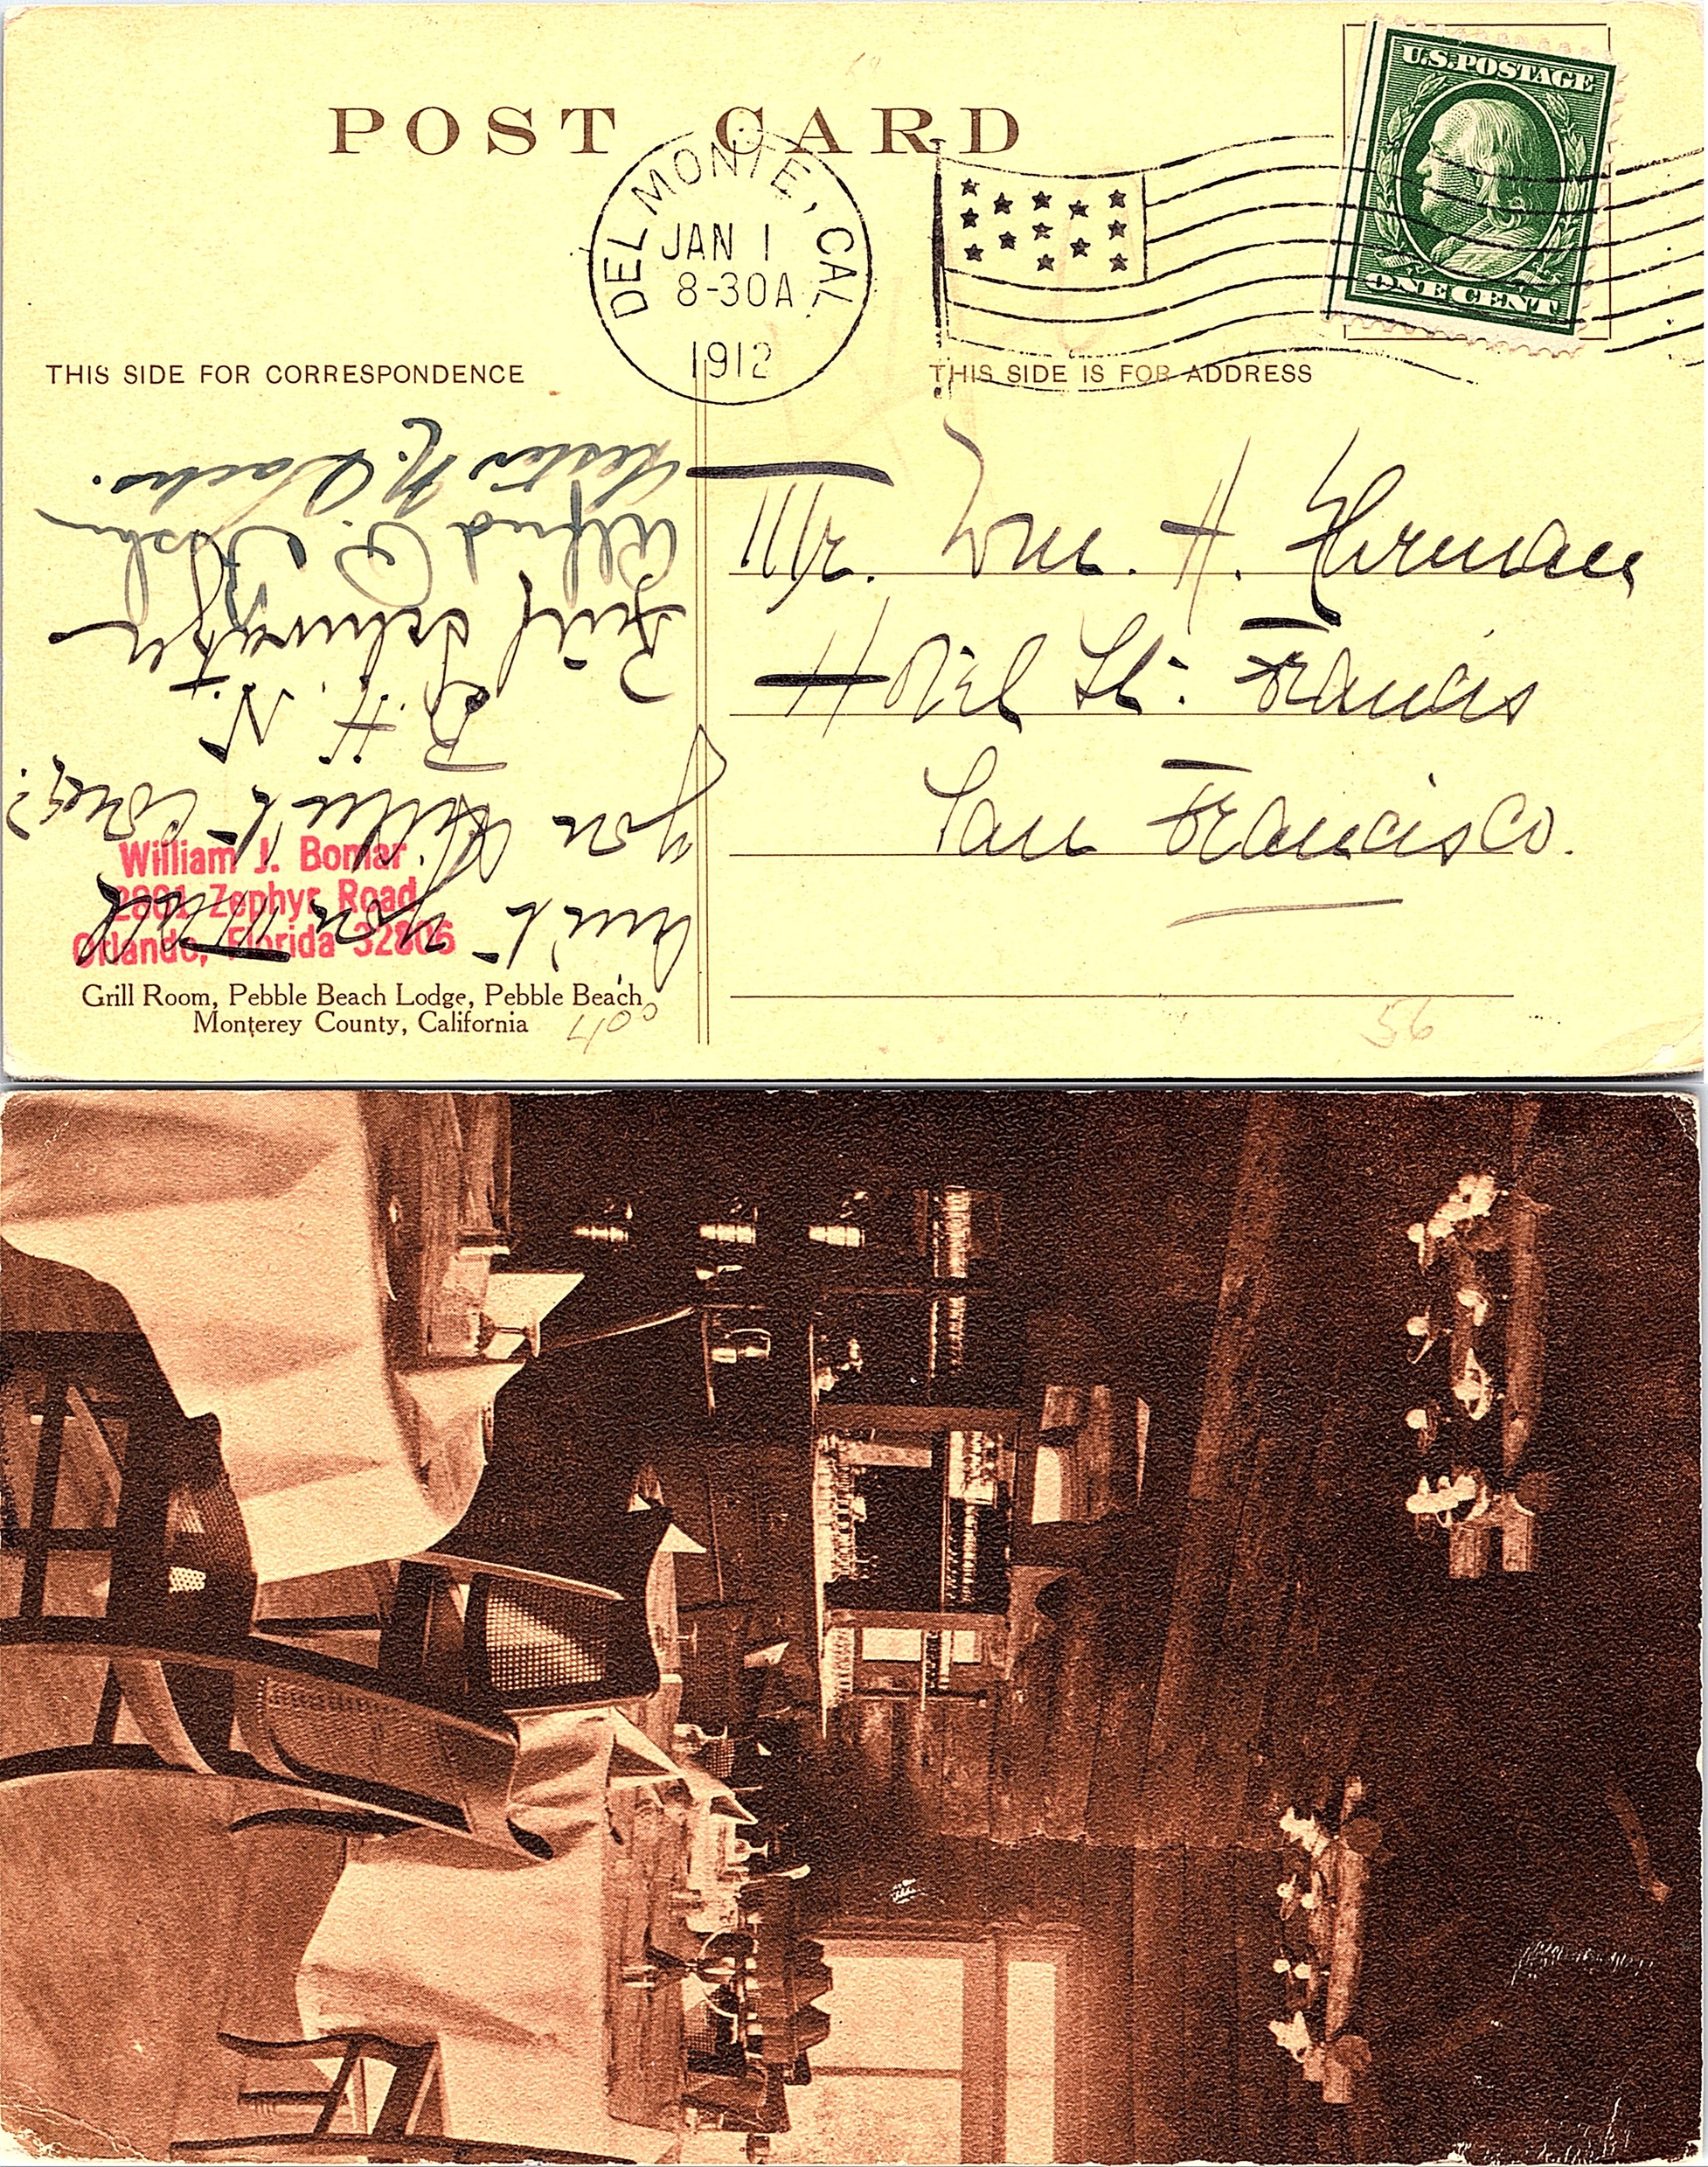 POST CARD
U.S. POSTAGE
ONE CENT
DEL MONTE, CAL.
JAN 1
8-30A
1912
THIS SIDE FOR CORRESPONDENCE
THIS SIDE IS FOR ADDRESS
Mr. Wm. H. Herman
Hotel St. Francis
San Francisco.
Ain't you mad
you didn't come?
H. N.
Phil Schwartz
Alfred
Lester N. Sachs.
William J. Bomar
2801 Zephyr Road
Orlando, Florida 32806
Grill Room, Pebble Beach Lodge, Pebble Beach,
Monterey County, California
400
56